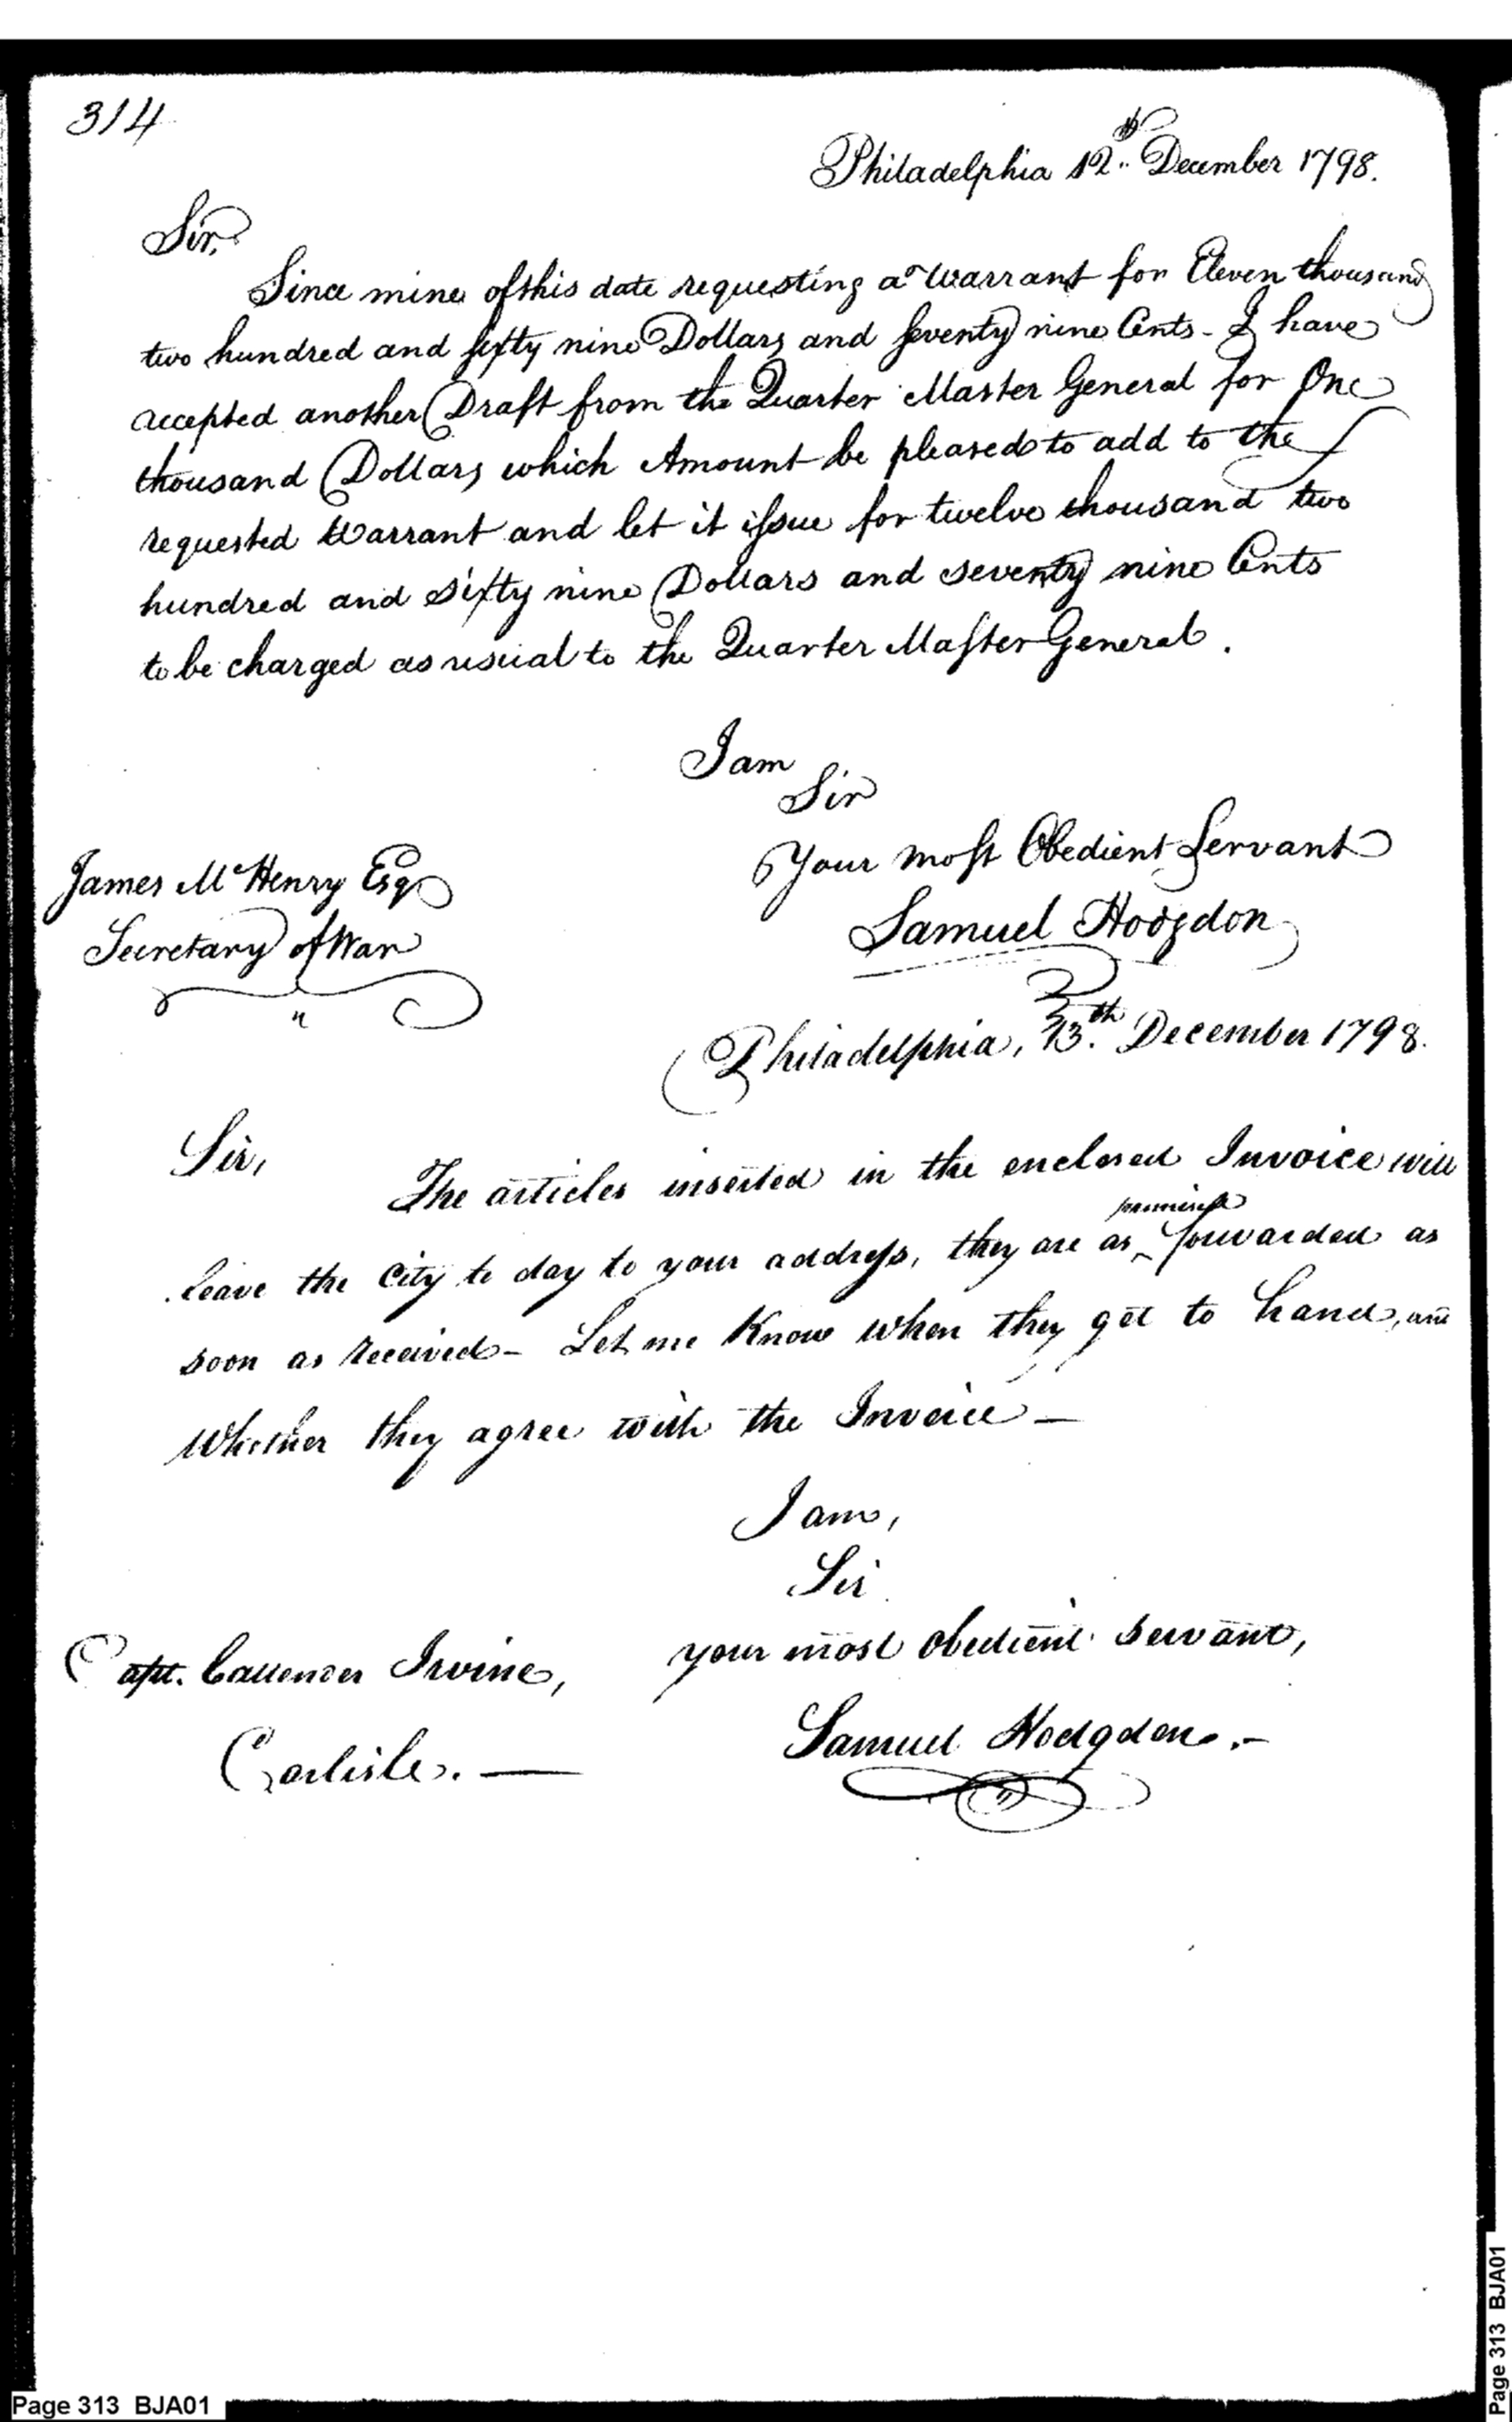 314
Philadelphia 12th December 1798.
Sir,
Since mine of this date requesting a Warrant for Eleven thousand
two hundred and sixty nine Dollars and seventy nine Cents - I have
accepted another Draft from the Quarter Master General for One
thousand Dollars which Amount be pleased to add to the
requested Warrant and let it issue for twelve thousand two
hundred and sixty nine Dollars and seventy nine Cents
to be charged as usual to the Quarter Master General.
I am
Sir
Your most Obedient Servant
Samuel Hodgdon
James McHenry Esq
Secretary of War
Philadelphia, 13th. December 1798.
Sir,
The articles inserted in the enclosed Invoice will
promised
leave the City to day to your address, they are as ^ forwarded as
soon as received - Let me Know when they get to hand, and
Whether they agree with the Invoice —
I am,
Sir
your most obedient servant,
Samuel Hodgdon. -
Capt. Callender Irvine,
Carlisle. —
Page 313 BJA01
Page 313 BJA01